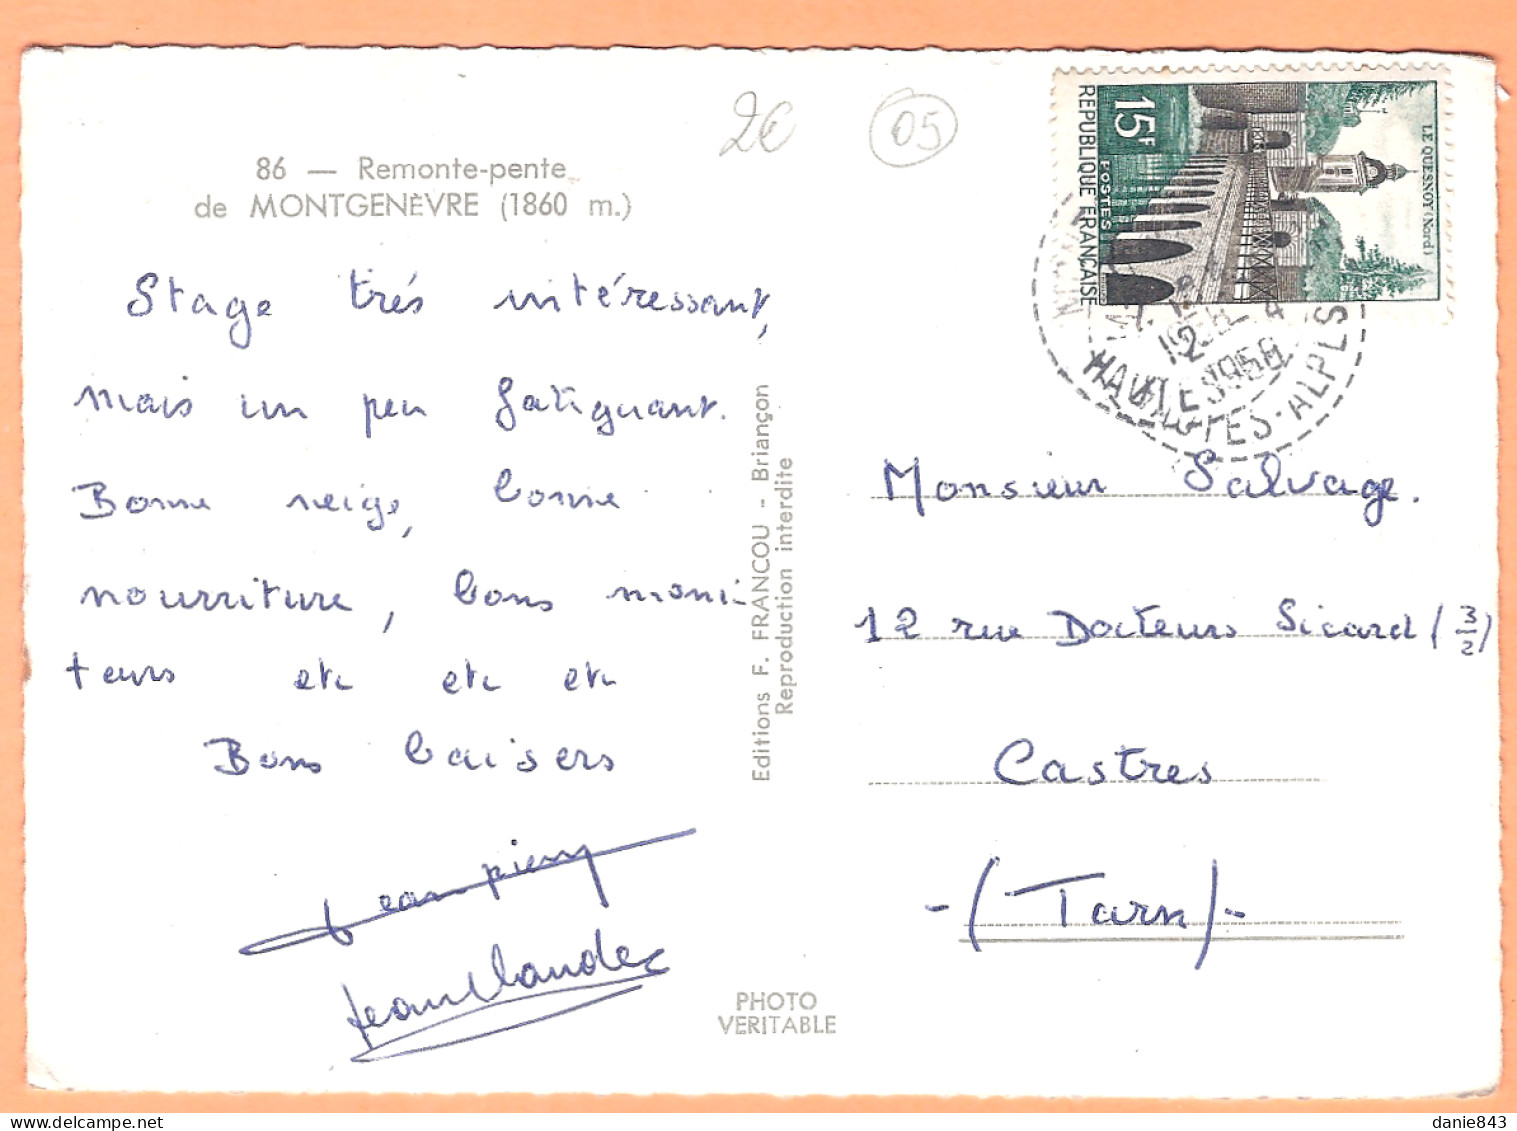 86 — Remonte-pente
de MONTGENÈVRE (1860 m.)
2€
05
Stage trés intéressant,
mais un peu fatiguant.
Bonne neige, bonne
nourriture, bons moni-
teurs etc etc etc
Bons baisers
Jean pierre
Jean Claude
Editions F. FRANCOU - Briançon
Reproduction interdite
PHOTO
VERITABLE
15F
POSTES
REPUBLIQUE FRANÇAISE
LE QUESNOY (Nord)
1958
HAUTES-ALPES
Monsieur Salvage.
12 rue Docteurs Sicard (3/2)
Castres
-(Tarn)-
danie843